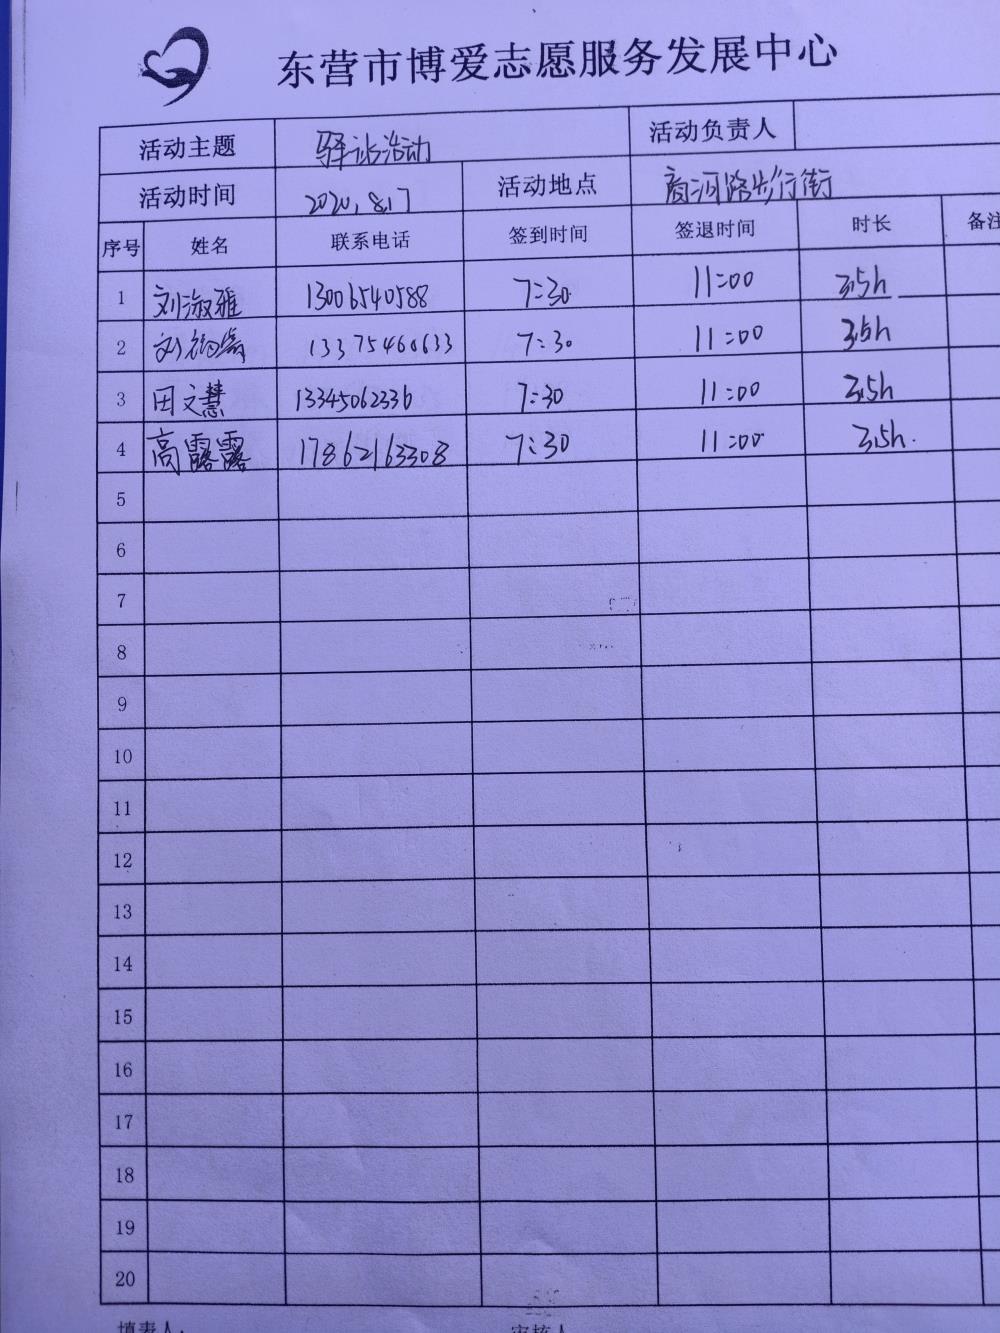 东营市博爱志愿服务发展中心
活动主题 驿站活动 活动负责人
活动时间 2020.8.17 活动地点 商河路步行街
序号 姓名 联系电话 签到时间 签退时间 时长 备注
1 刘淑雅 13006540588 7:30 11:00 3.5h
2 刘 13375460633 7:30 11:00 3.5h
3 田文慧 13345062336 7:30 11:00 3.5h
4 高露露 17862163308 7:30 11:00 3.5h.
5
6
7
8
9
10
11
12
13
14
15
16
17
18
19
20
填表人: 审核人